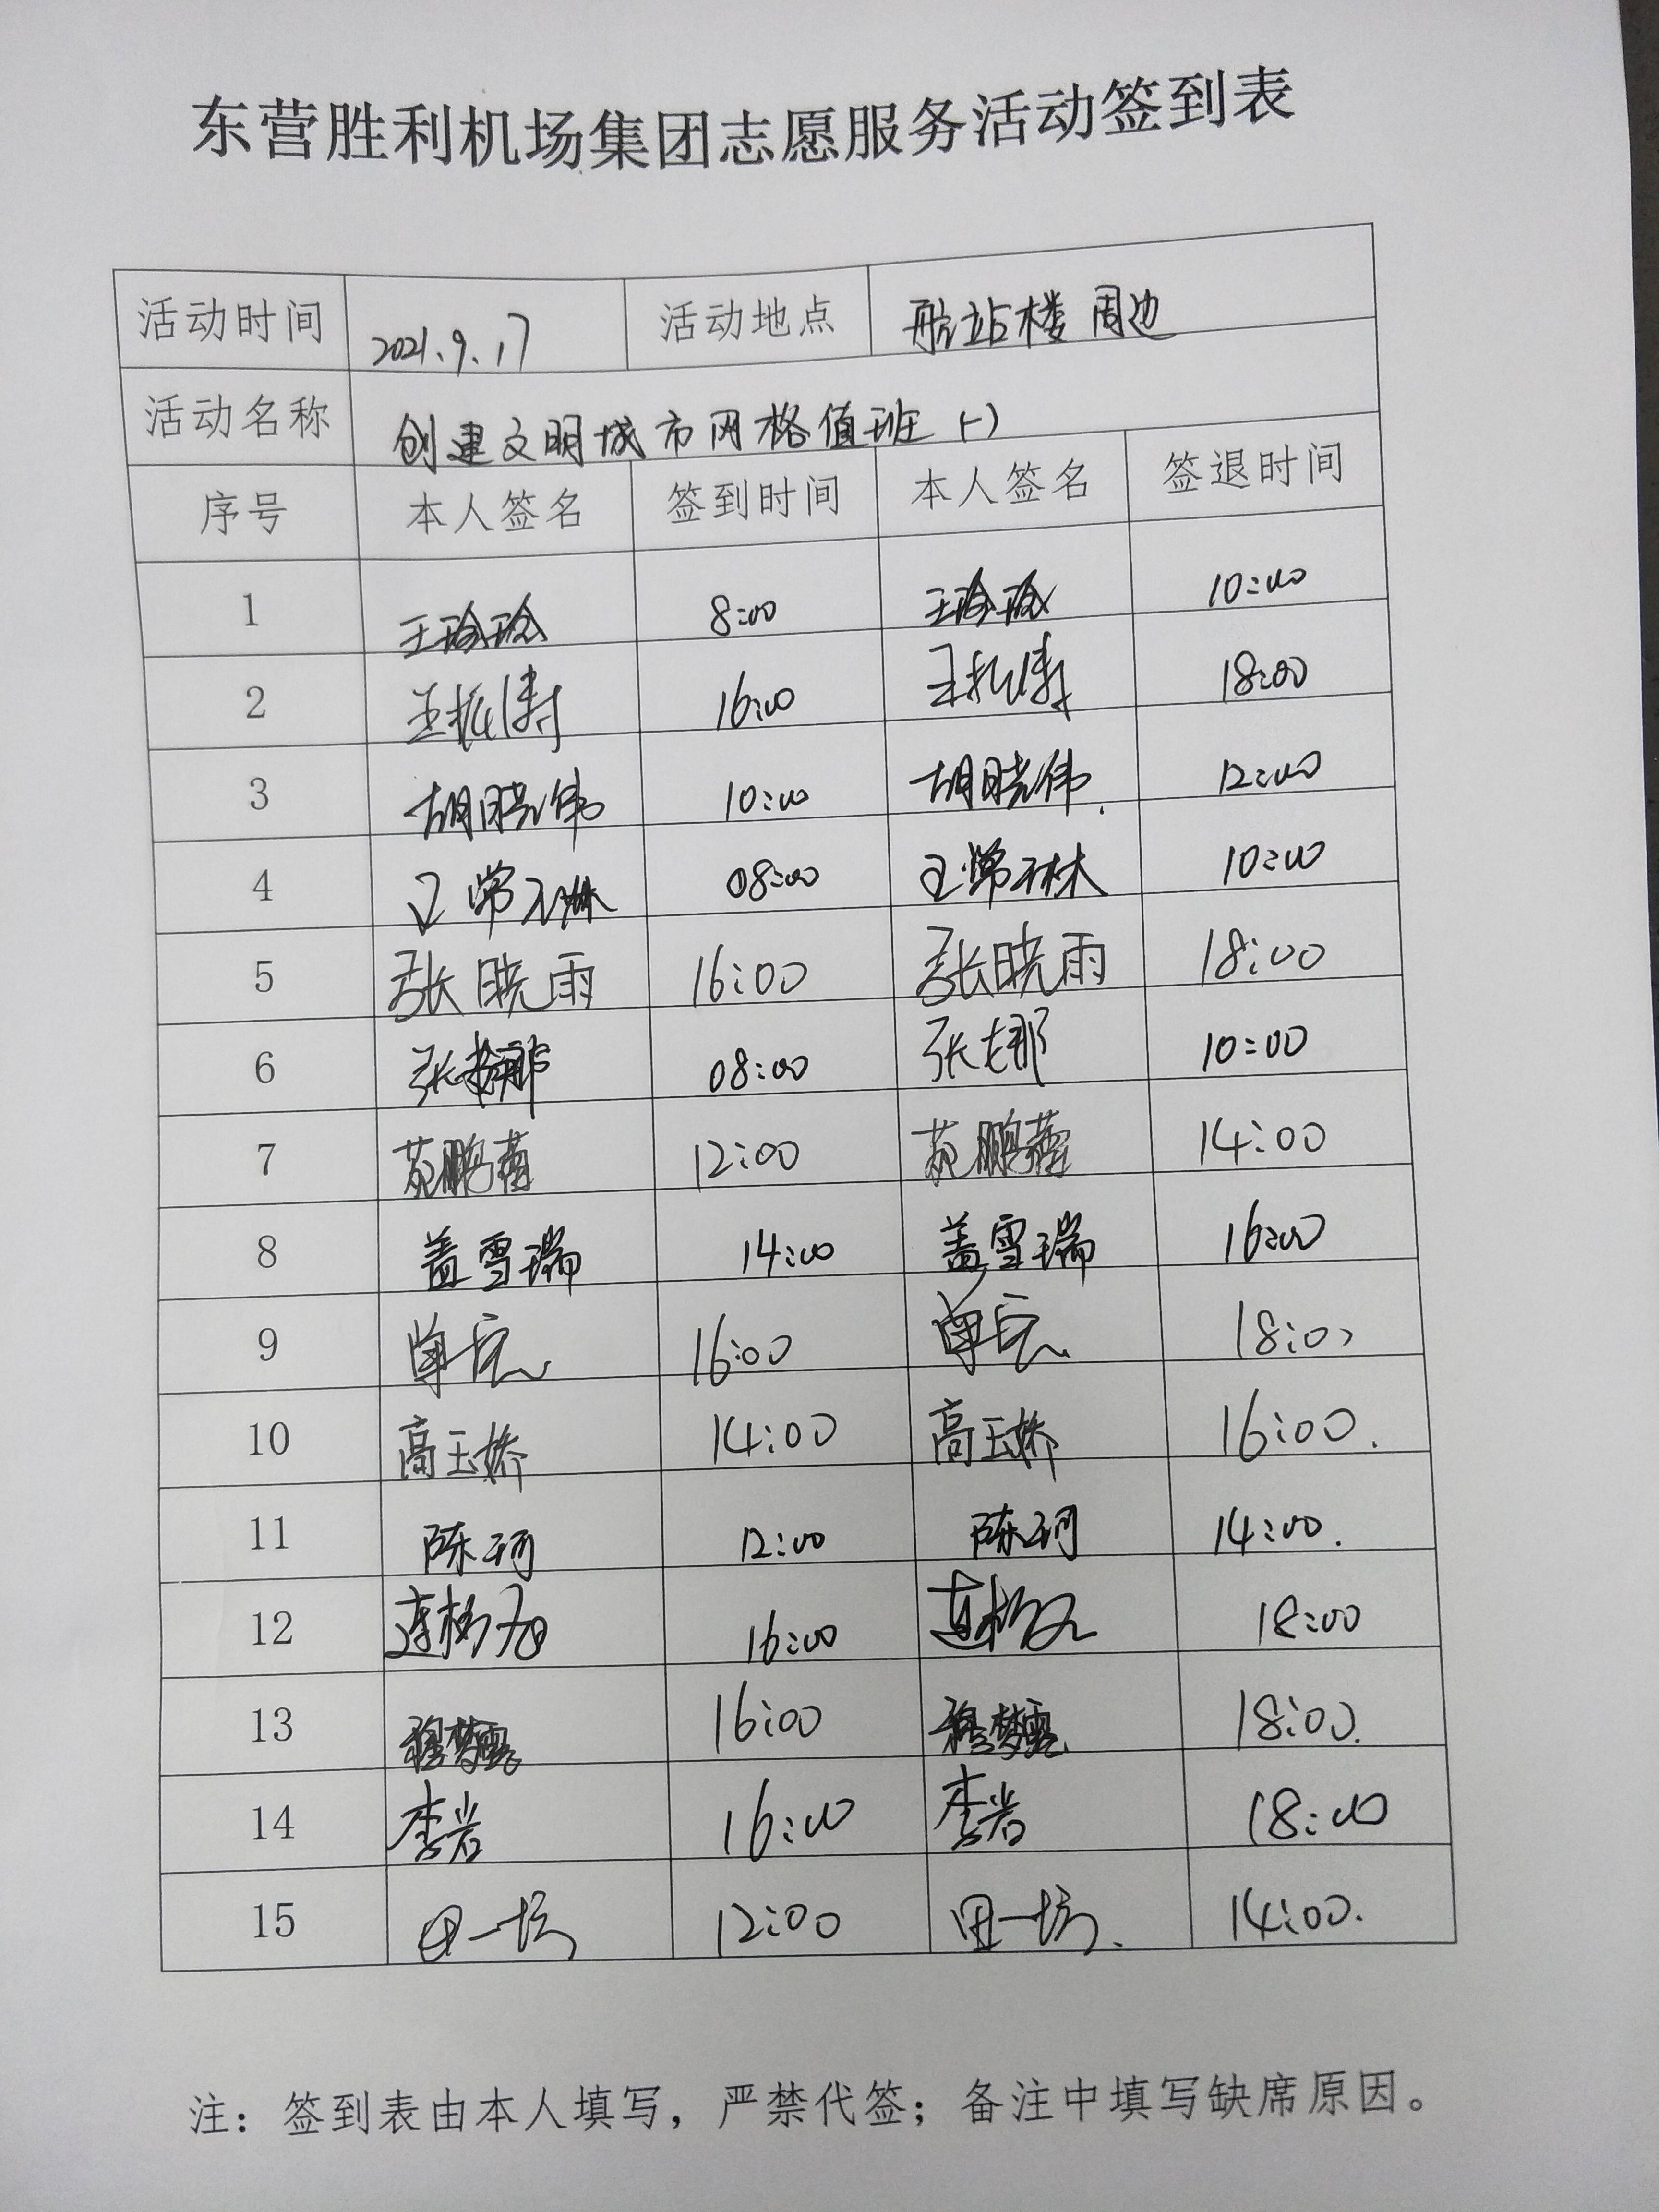 东营胜利机场集团志愿服务活动签到表
活动时间 2021.9.17 活动地点 航站楼周边
活动名称 创建文明城市网格值班（一）
序号 本人签名 签到时间 本人签名 签退时间
1 王玲玲 8:00 王玲玲 10:00
2 王振涛 16:00 王振涛 18:00
3 胡晓伟 10:00 胡晓伟 12:00
4 王常琳 08:00 王常琳 10:00
5 张晓雨 16:00 张晓雨 18:00
6 张 08:00 张 10:00
7 苑鹏 12:00 苑鹏 14:00
8 盖雪瑞 14:00 盖雪瑞 16:00
9 单 16:00 单 18:00
10 高玉娇 14:00 高玉娇 16:00.
11 陈珂 12:00 陈珂 14:00.
12 16:00 18:00
13 程梦 16:00 程梦 18:00.
14 李岩 16:00 李岩 18:00
15 田一 12:00 田一 14:00.
注：签到表由本人填写，严禁代签；备注中填写缺席原因。